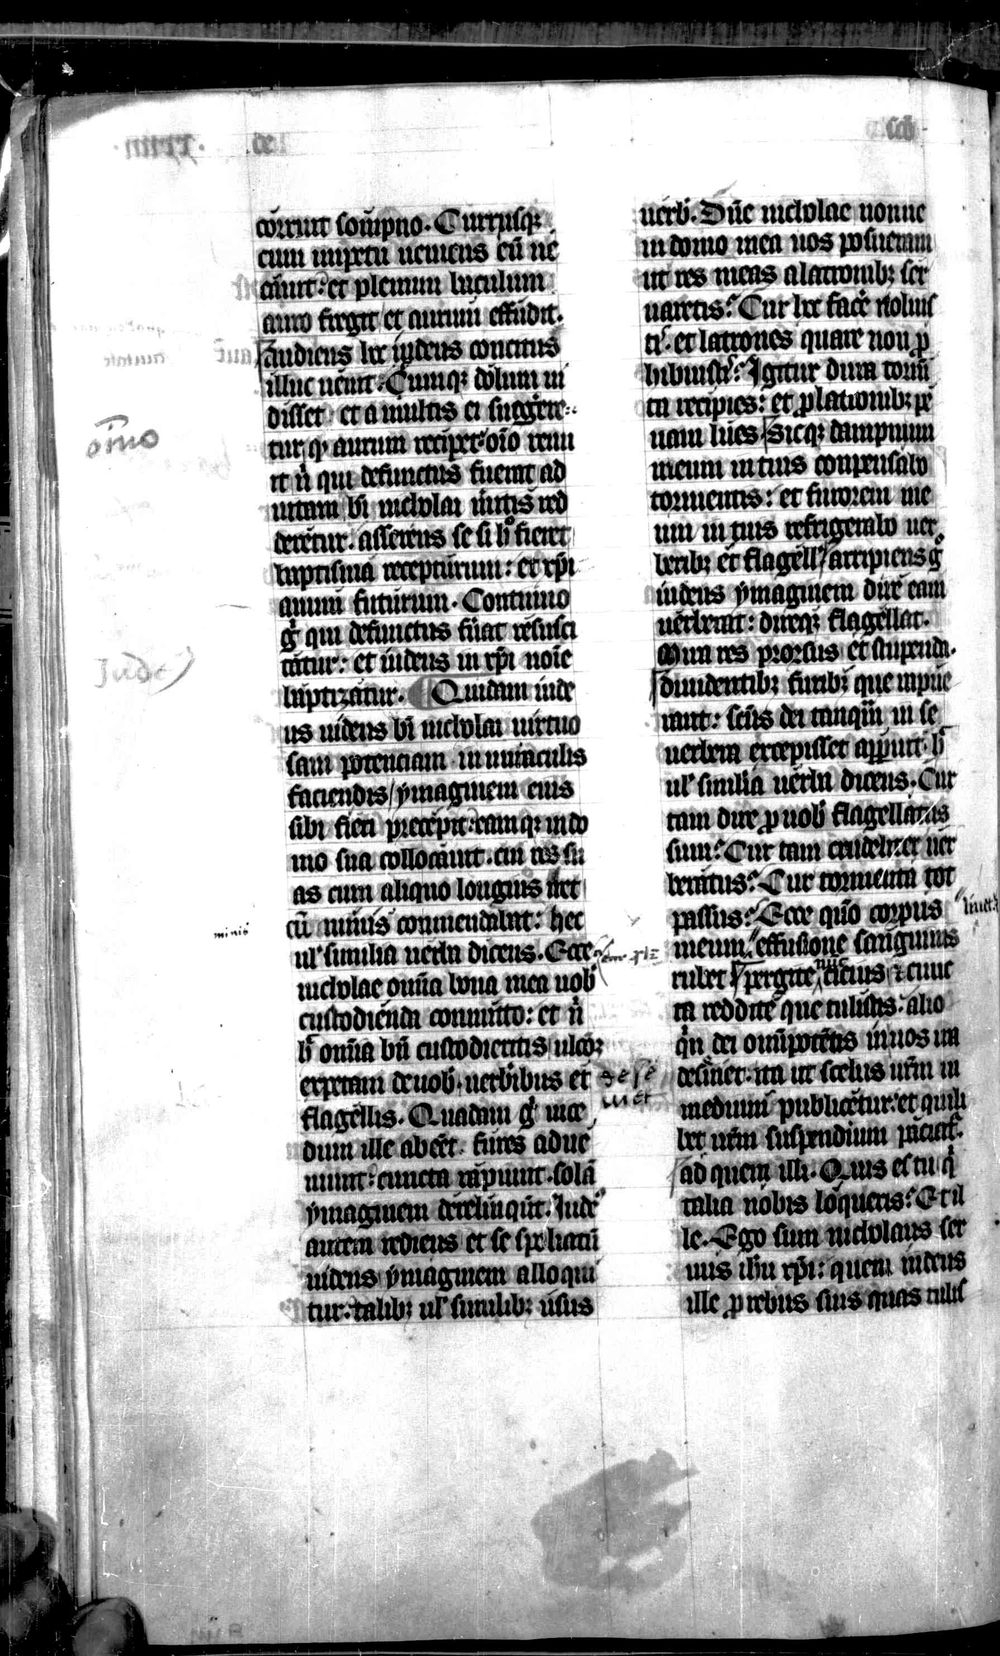 corruit sompno. Currusq;
cum impetu ueniens eū ne
cauit: et plenum baculum
auro fregit et aurum effudit.
Audiens hec iudeus concitus
illuc uenit. Cumq; dolum ui
disset et a multis ei suggere-
tur qͥ aurum reciperet oīo renu
it nͥ qui defunctus fuerat ad
uitam bī nicholai meritis red
deretur. asserens se si hͦ fieret
baptisma recepturum: et xp̄i
anum futurum. Continuo
gͦ qui defunctus fuat resusci
tatur: et iudeus in xp̄i noīe
baptizatur. Quidam iude
us uidens bī nicholai uirtuo
sam potenciam in miraculis
faciendis ymaginem eius
sibi fieri precepit. eamq; in do
mo sua collocauit. cui res su
as cum aliquo longius iret
cū minis commendabat: hec
ul' similia uerba dicens. Ecce
nicholae omīa bona mea uob
custodienda committo: et nͥ
hͨ omīa bn̄ custodieritis ulcōꝫ
expetam de uob. uerberibus et
flagellis. Quadam gͦ uice
dum ille abeēt. fures adue
niunt. cuncta rapiunt. solā
ymaginem derelinqūt. Iude
autem rediens et se spoliatū
uidens ymaginem alloqui
tur: talib; ul' similib; usus
uerb. Dn̄e nicholae nonne
in domo mea uos posueram
ut res meas a latronib; ser
uaretis? Cur hec facē noluis
ti? et latrones quare non ꝓ
hibuistis? Igitur dira tormē
ta recipies: et ꝓ latronib; pe
nam lues. Sicq; dampnum
meum in tuis conpensabo
tormentis: et furorem me
um in tuis refrigerabo uer
berib; et flagell' arripiens gͦ
iudeus ymaginem dire eam
uerberat: direq; flagellat.
Mira res prorsus et stupenda.
diuidentib; furib; que rapue
rant: scūs dei tanquā in se
uerbera excepisset apparuit. hͨ
ul' similia uerba dicens. Cur
tam dire ꝓ uob flagellatus
sum? Cur tam crudelit̄ uer
beratus? Cur tormenta tot
passus? Ecce quō corpus
meum. effusione sanguinis
rubet pergite cicius & cunc
ta reddite que tulistis. alio
qͥn dei omīpotētis in uos ira
deseuiet. ita ut scelus ūrm in
medium publicetur. et quili
bet ūrm suspendium paciat.
ad quem illi. Quis es tu qͥ
talia nobis loqueris? Et il
le. Ego sum nicholaus ser
uus ihū xp̄i: quem iudeus
ille ꝓ rebus suis quas tulis
oīmo
Jude
minis